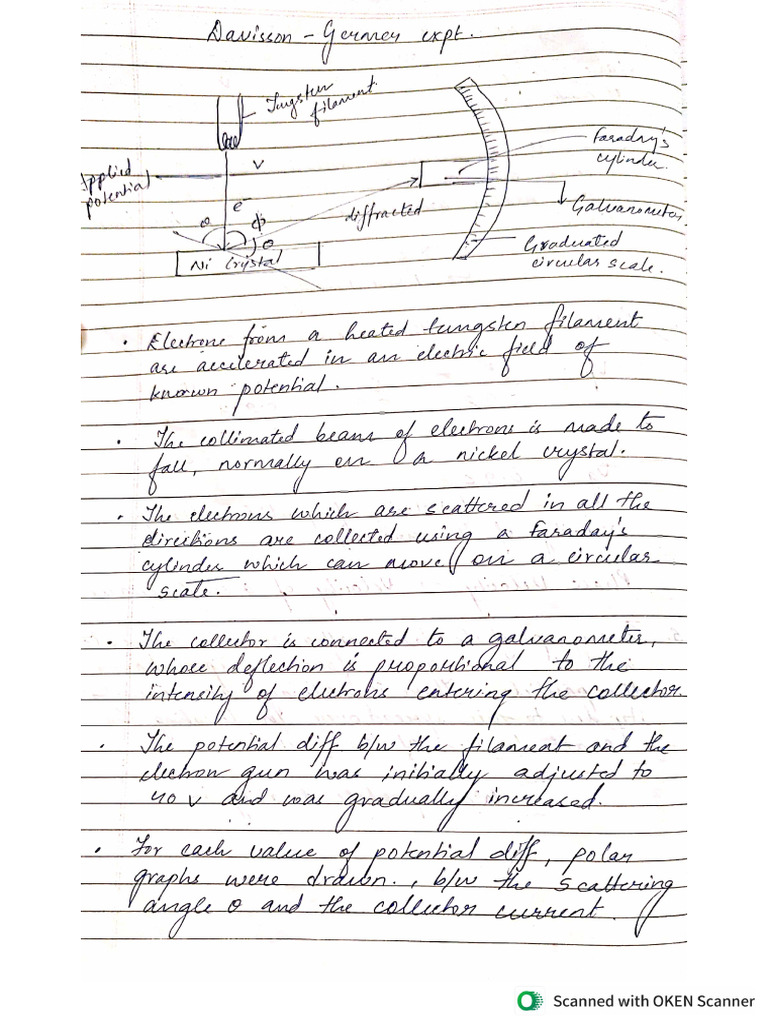 Davisson - Germer expt.
Tungsten
filament
Applied
potential
V
e⁻
θ
ϕ
θ
Ni Crystal
diffracted
Faraday's
cylinder
Galvanometer
Graduated
circular scale.
• Electrons from a heated tungsten filament
are accelerated in an electric field of
known potential.
• The collimated beam of electrons is made to
fall, normally on a nickel crystal.
• The electrons which are scattered in all the
directions are collected using a Faraday's
cylinder which can move on a circular
scale.
• The collector is connected to a galvanometer,
whose deflection is proportional to the
intensity of electrons entering the collector.
• The potential diff b/w the filament and the
electron gun was initially adjusted to
40 V and was gradually increased.
• For each value of potential diff, polar
graphs were drawn., b/w the scattering
angle θ and the collector current.
Scanned with OKEN Scanner